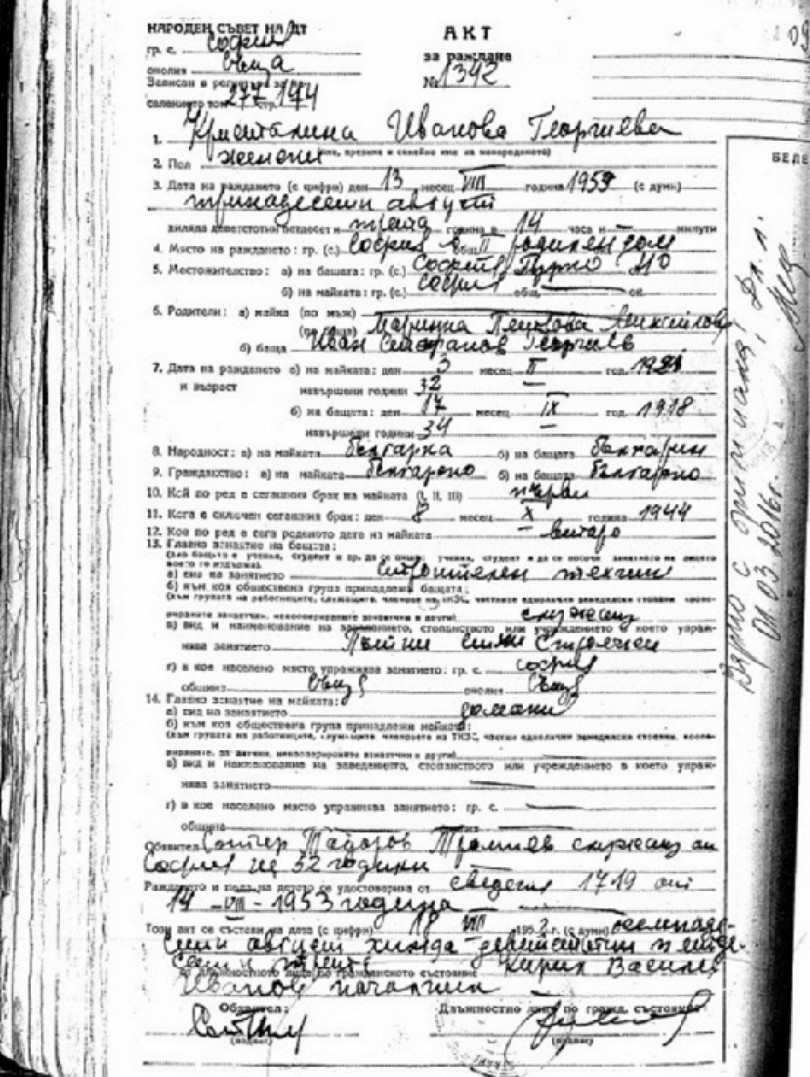 НАРОДЕН СЪВЕТ НА ДТ
гр. с. София
околия съща
Записан в регистъра за
населението том 277 стр. 194
АКТ
за раждане
№ 1342
1. Кристалина Иванова Георгиева
(име, презиме и фамилно име на новороденото)
2. Пол женски
3. Дата на раждането (с цифри) ден 13 месец VIII година 1953 (с думи)
тринадесети август
хиляда деветстотин петдесет и трета година в 14 часа и — минути
4. Място на раждане: гр. (с.) София общ. II родилен дом
5. Местожителство: а) на бащата: гр. (с.) София
б) на майката: гр. (с.) София общ. ок.
6. Родители: а) майка (по мъж)
(по баща) Маринка Пенкова
б) баща Иван Стефанов Георгиев
7. Дата на раждането а) на майката: ден 3 месец II год. 1921
и възраст навършени години 32 —
б) на бащата: ден 17 месец IX год. 1918
навършени години 34 —
8. Народност: а) на майката българка б) на бащата българин
9. Гражданство: а) на майката българско б) на бащата българско
10. Кой по ред е сегашния брак на майката (I, II, III) първи
11. Кога е сключен сегашния брак: ден 8 месец X година 1944
12. Кое по ред е сега роденото дете из майката — второ
13. Главно занятие на бащата:
а) вид на занятието строителен техник
б) към коя обществена група принадлежи бащата:
служещ
в) вид и наименование на заведението, стопанството или учреждението в което упраж-
нява занятието
г) в кое населено място упражнява занятието: гр. с. София
община същ околия същ
14. Главно занятие на майката:
а) вид на занятието домакин
б) към коя обществена група принадлежи майката:
в) вид и наименование на заведението, стопанството или учреждението в което упраж-
нява занятието
г) в кое населено място упражнява занятието: гр. с.
община
Обявител Тодоров служещ от
София на 52 години
Раждането и пола на детето се удостоверяв от сведения 1719 от
14 - VIII - 1953 година
Този акт се състави на дата (с цифри) 18 VIII 1953 г. (с думи) осемнаде-
сети август хиляда деветстотин петде-
сет и трета
от длъжностното лице по гражданското състояние Кирил Василев
Иванов началник
Обявител: Длъжностно лице по гражд. състояние
(подпис) (подпис)
БЕЛЕ
Вярно с оригинала! Дл. л.
01.03.2016г.